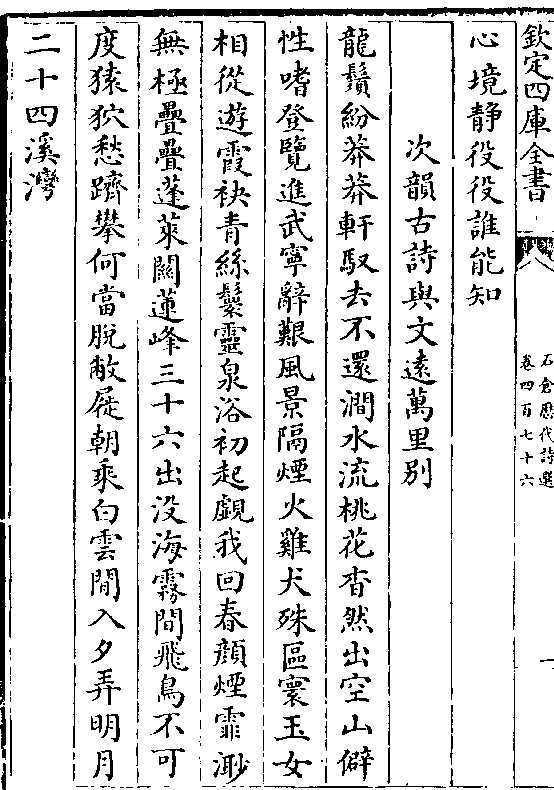 欽定四庫全書
石倉歷代詩選
卷四百七十六
心境静役役誰能知
次韻古詩與文遠萬里别
龍鬚紛莽莽軒馭去不還澗水流桃花杳然出空山僻
性嗜登覽進武寧辭艱風景隔煙火雞犬殊區寰玉女
相從遊霞袂青絲鬟靈泉浴初起覷我回春顔煙霏渺
無極疊疊蓬萊關蓮峰三十六出没海霧間飛鳥不可
度猿狖愁躋攀何當脱敝屣朝乘白雲間入夕弄明月
二十四溪灣